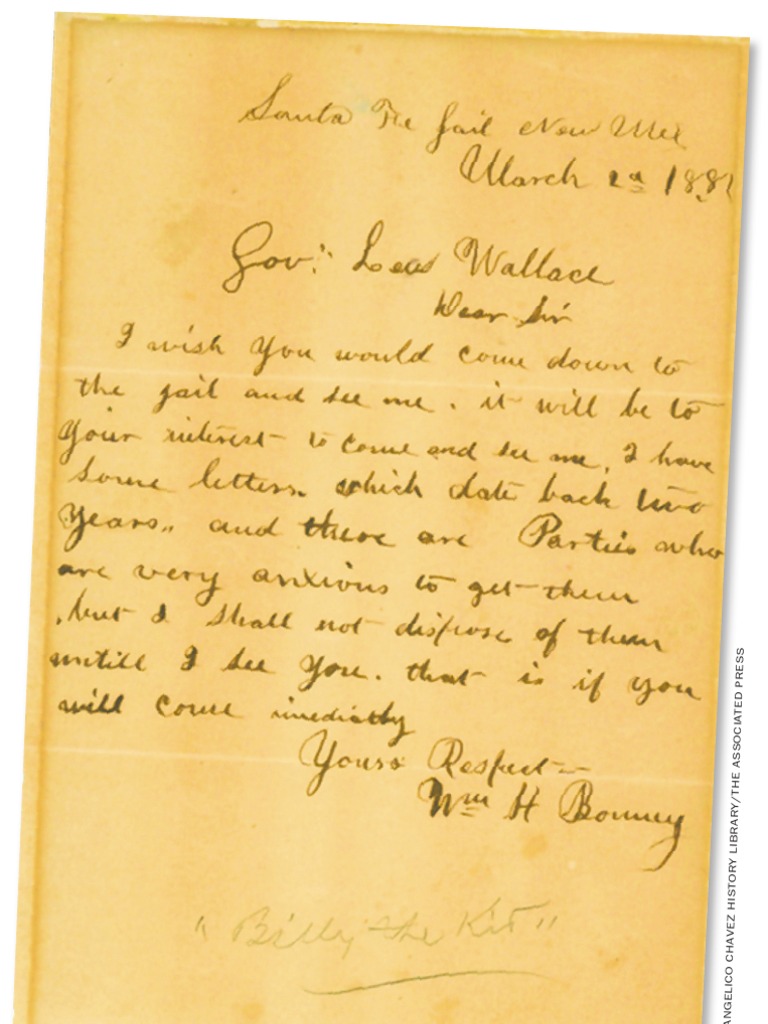 Santa Fe Jail New Mex
March 2d 1881
Gov. Lew Wallace
Dear Sir
I wish you would come down to
the jail and see me. it will be to
your interest to come and see me. I have
some letters which date back two
years,, and there are Parties who
are very anxious to get them
, but I shall not dispose of them
untill I see you. that is if you
will come imediatly
Yours Respect
Wm H Bonney
"Billy the Kid"
ANGELICO CHAVEZ HISTORY LIBRARY/THE ASSOCIATED PRESS